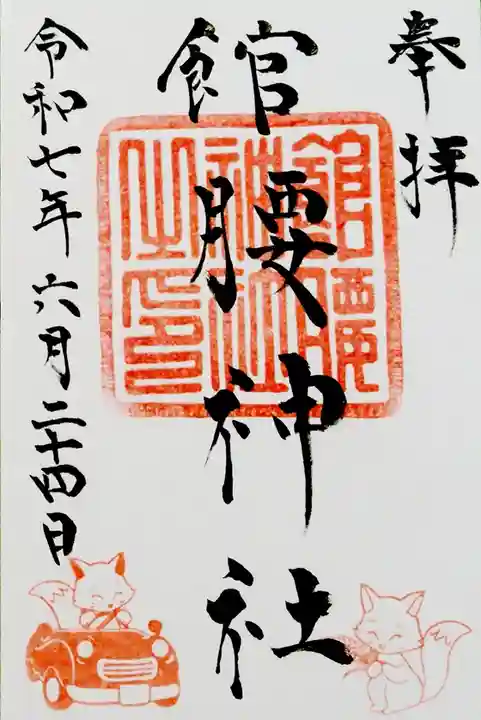 奉拝
館腰神社
館腰
神社
之印
令和七年六月二十四日